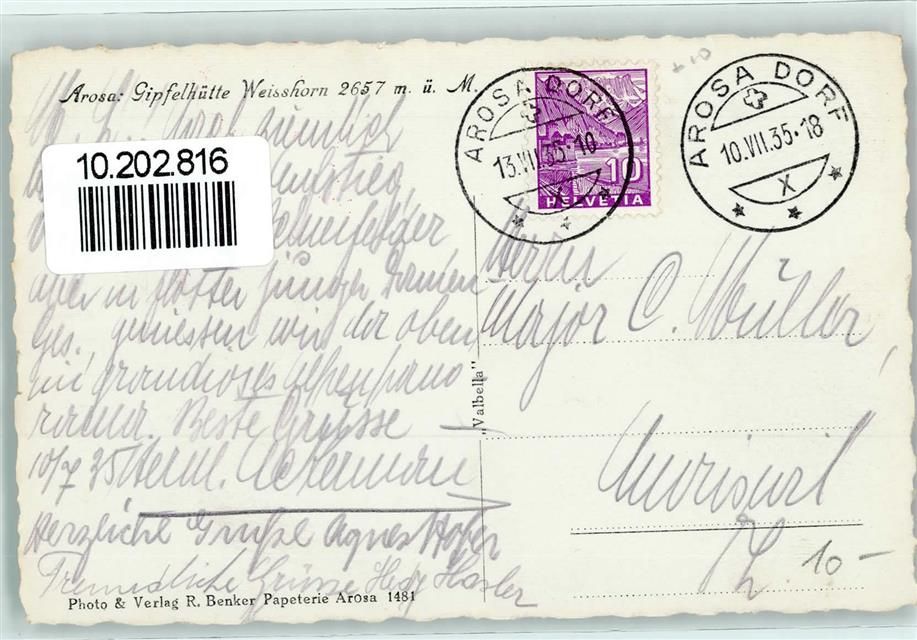 Arosa: Gipfelhütte Weisshorn 2657 m. ü. M.
10.202.816
aber in flotter junger Damen
ges. geniessen wir da oben
ein grandioses Alpenpano
rama. Beste Grüsse
10/7 35 Herm. Ackermann
Herzliche Grüße Agnes Hofer
Freundliche Grüsse Hedy Hasler
Photo & Verlag R. Benker Papeterie Arosa 1481
"Valbella"
AROSA DORF
13.VII.35-10
10
HELVETIA
AROSA DORF
10.VII.35-18
X
Herrn
Major C. Müller,
Zch.
10-